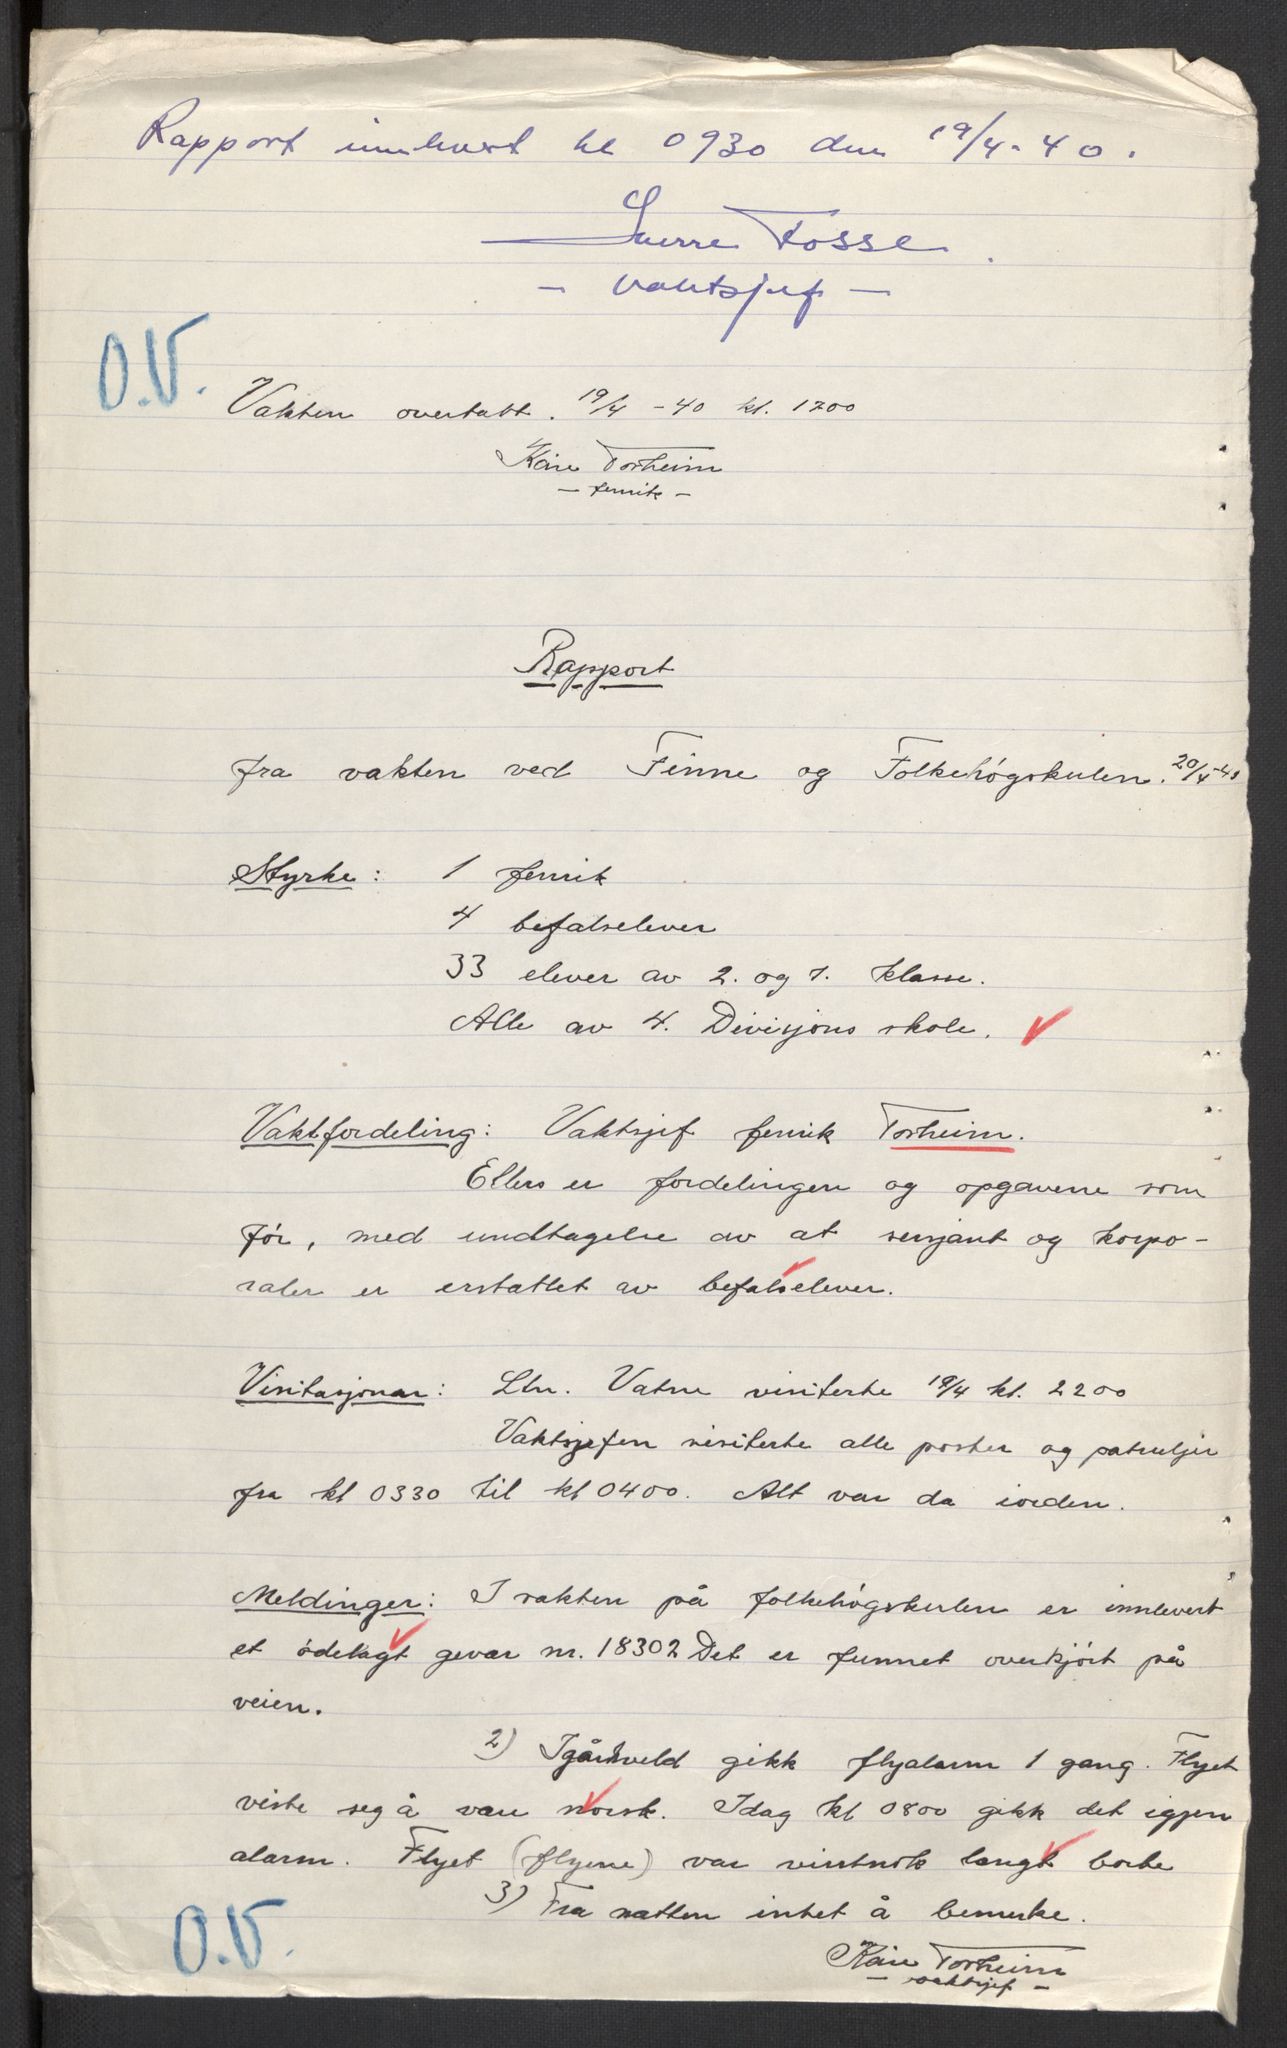 Rapport innlevert kl 0930 den 19/4-40.
Sverre Fosse.
- Vaktsjef -
O.V.
Vakten overtatt. 19/4 -40 kl. 1200
Kåre Torheim
- fenrik -
Rapport
fra vakten ved Finne og Folkehøgskulen. 20/4-40
Styrke: 1 fenrik
4 befalselever
33 elever av 2. og 1. klasse.
Alle av 4. Divisjons skole.
Vaktfordeling: Vaktsjef fenrik Torheim.
Ellers er fordelingen og opgavene som
før, med undtagelse av at sersjant og korpo-
raler er erstattet av befalselever.
Visitasjonar: Ltn. Vatne visiterte 19/4 kl. 2200
Vaktsjefen visiterte alle poster og patruljer
fra kl 0330 til kl 0400. Alt var da iorden.
Meldinger: I vakten på folkehøgskulen er innlevert
et ødelagt gevær nr. 18302 Det er funnet overkjørt på
veien.
2) Igårkveld gikk flyalarm 1 gang. Flyet
viste seg å være norsk. Idag kl 0800 gikk det igjen
alarm. Flyet (flyene) var visstnok langt borte
3) Fra natten intet å bemerke.
Kåre Torheim
- vaktsjef -
O.V.